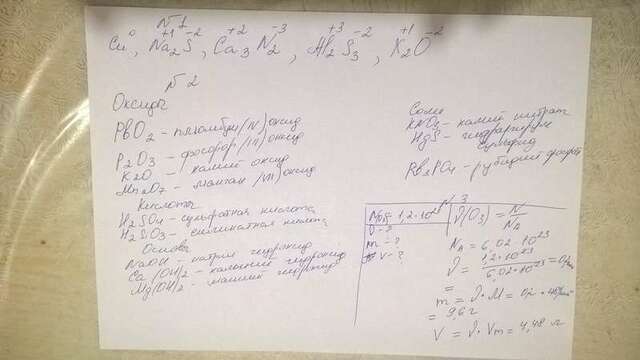 N 1
Cu⁰, Na₂⁺¹S⁻², Ca₃⁺²N₂⁻³, Al₂⁺³S₃⁻², K₂⁺¹O⁻²
N 2
Оксиды
PbO₂ - плюмбум (IV) оксид
P₂O₃ - фосфор (III) оксид
K₂O - калий оксид
Mn₂O₇ - манган (VII) оксид
Кислоты
H₂SO₄ - сульфатна кислота
H₂SiO₃ - кислота
Основы
NaOH - натрий гидроксид
Ca(OH)₂ - кальций гидроксид
Mg(OH)₂ - магний гидроксид
Соли
KNO₃ - калий нитрат
HgS - гидраргирум
сульфид
- рубидий фосфат
N 3
1,2·10²³
ν - ?
m - ?
V - ?
ν(O₃) = N/Nₐ
Nₐ = 6,02·10²³
ν = 1,2·10²³/6,02·10²³ =
=
m = ν·M = 0,2 ·
= 9,6 г
V = ν·Vm = 4,48 л